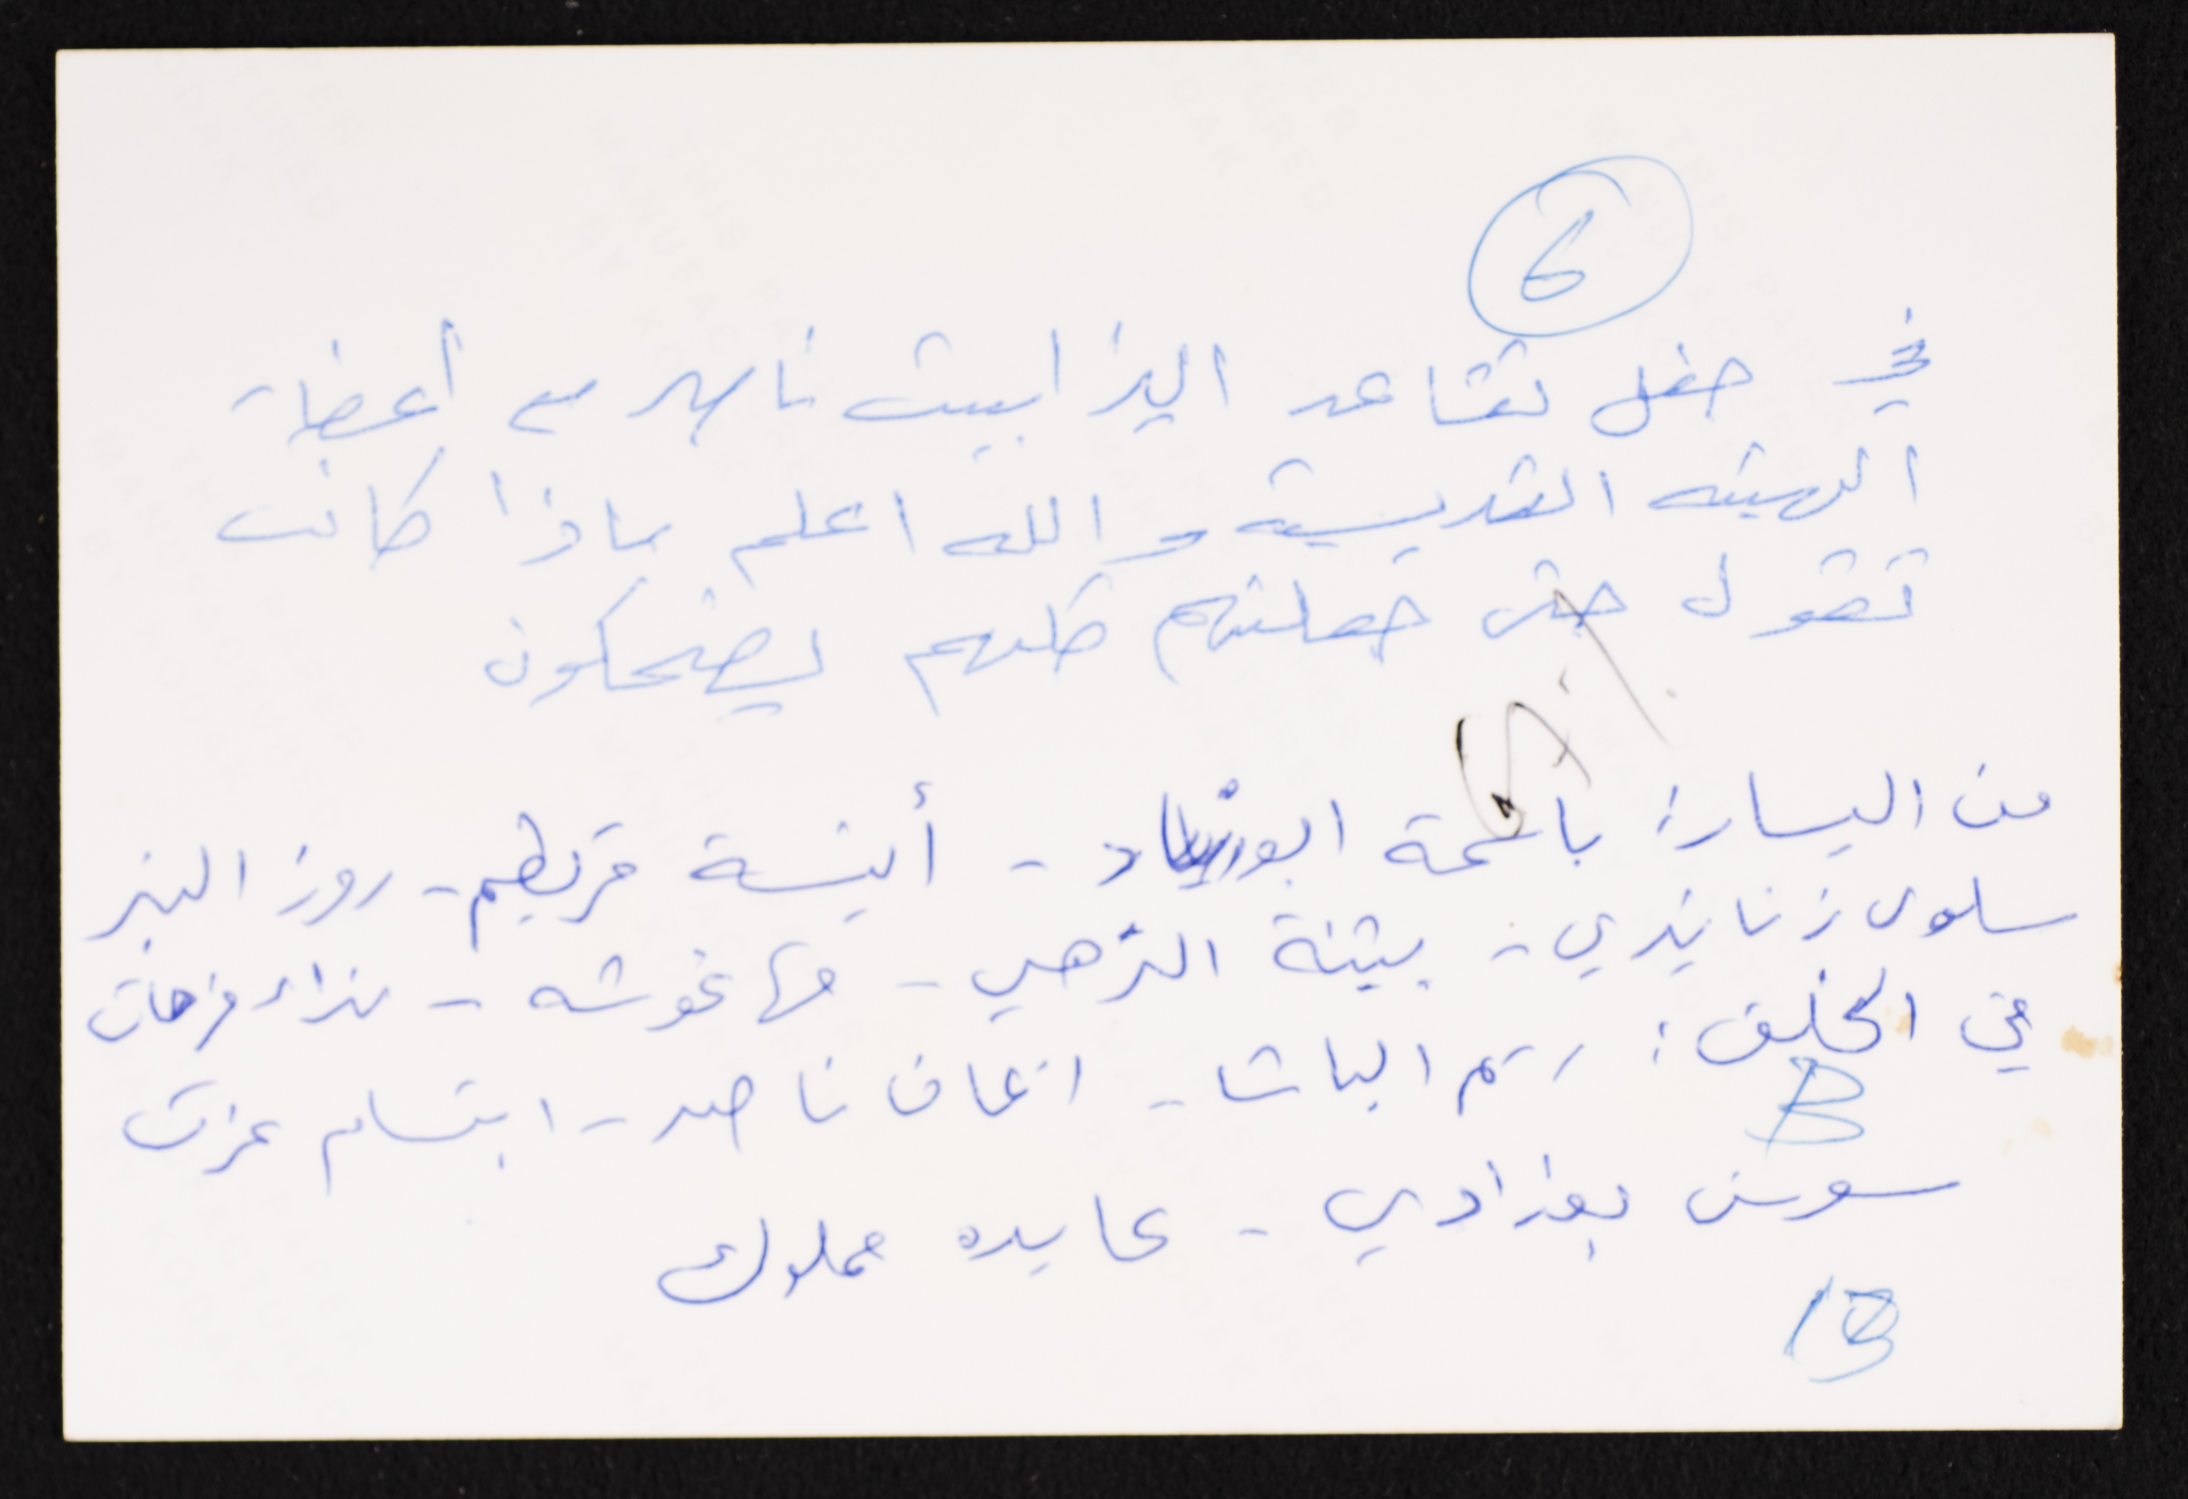 6
في حفل تقاعد اليزابيث ناصر مع أعضاء
الهيئه التدريسية والله اعلم ماذا كانت
تقول حتى جعلتهم كلهم يضحكون
من اليسار: باسمة ابو - أنيسة قريطم - روز البنر
سلوى زنانيري - بثينة الترهي - مها غوشه - نداء فرحات
في الخلف: ريتم الباشا - انعام ناصر - ابتسام عزت
B
سوسن بغدادي - عايده مملوك
B